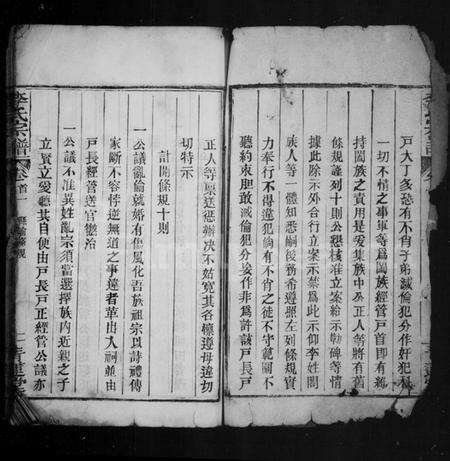 戶大丁多恐有不肖子弟滅倫犯分作奸犯科
一切不情之事軍等爲闔族經管戶首即有維
持闔族之責用是爰集族中公正人等將有舊
條規謹列十則公懇核准立案給示勒碑等情
據此除示外合行立案示禁爲此示仰李姓闔
族人等一體知悉嗣後務希遵照左列條規實
力奉行不得違犯倘有不肖之徒不守範圍不
聽約束胆敢滅倫犯分姿作非爲許該戶長戶
正人等稟送懲辦决不姑寬其各懔遵毋違切
切特示
計開條規十則
一公議亂倫就婚有傷風化吾族祖宗以詩禮傳
家斷不容悖逆無道之事違者革出入祠並由
戶長經管送官懲治
一公議不准異姓亂宗須當選擇族內近親之子
立賢立愛聽其自便由戶長戶正經管公議亦
李氏宗譜
卷首一